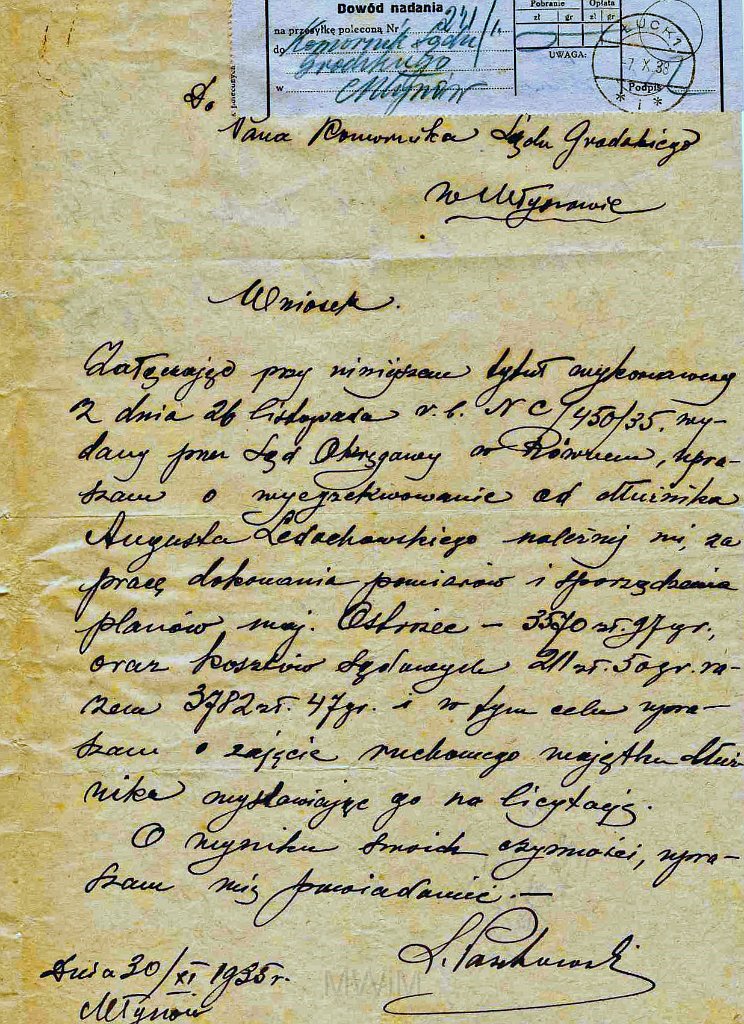 Dowód nadania
Pobranie Opłata
zł gr zł gr
na przesyłkę poleconą Nr 241/1.
do Komornik Sądu
Grodzkiego
UWAGA:
w Młynów
Podpis
ŁUCK 1
7. X. 38
Do
Pana Komornika Sądu Grodzkiego
w Młynowie
Wniosek.
Załączając przy niniejszem tytuł wykonawczy
z dnia 26 listopada r. b. N C/450/35. wy-
dany przez Sąd Okręgowy w Równem, upra-
szam o wyegzekwowanie od dłużnika
Augusta Ledochowskiego należnej mi, za
pracę dokonania pomiarów i sporządzenia
planów maj. Ostrożec – 3570 zł. 97 gr.,
oraz kosztów sądowych 211 zł. 50 gr. ra-
zem 3782 zł. 47 gr. i w tym celu upra-
szam o zajęcie ruchomego majątku dłuż
nika wystawiając go na licytację.
O wyniku swoich czynności, upra-
szam mię powiadomić. –
Dnia 30/XI 1935 r.
Młynów
MWIM